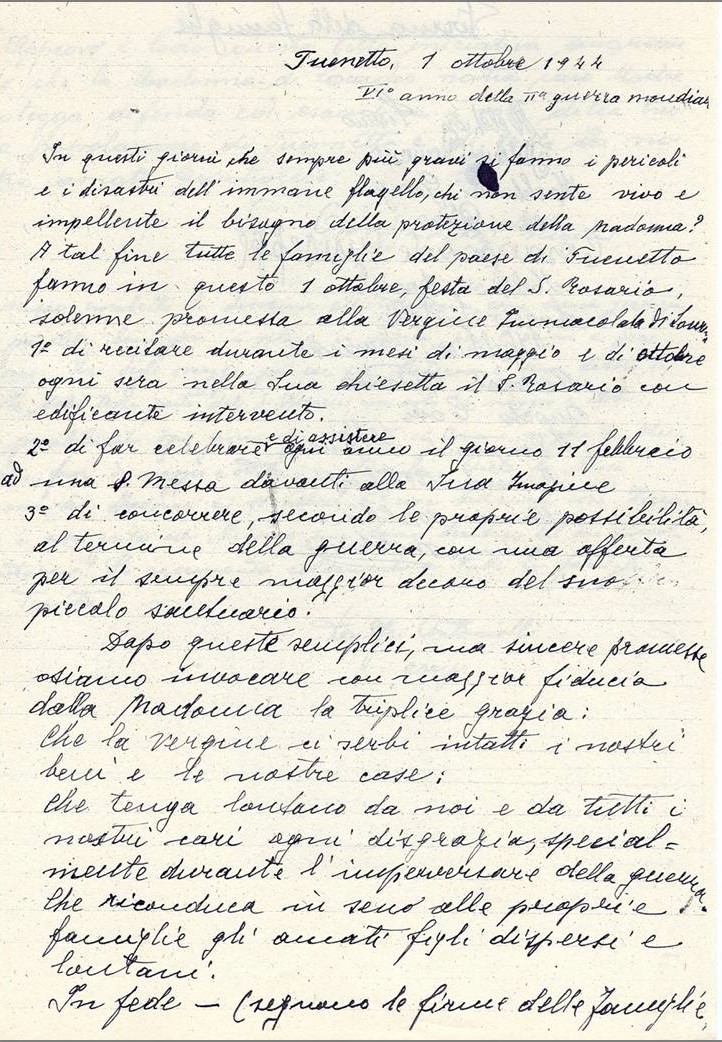 Tuenetto, 1 ottobre 1944
VI° anno della IIª guerra mondiale
In questi giorni che sempre più gravi si fanno i pericoli
e i disastri dell'immane flagello, chi non sente vivo e
impellente il bisogno della protezione della Madonna?
A tal fine tutte le famiglie del paese di Tuenetto
fanno in questo 1 ottobre, festa del S. Rosario,
solenne promessa alla Vergine Immacolata di Lourdes
1º di recitare durante i mesi di maggio e di ottobre
ogni sera nella Sua chiesetta il S. Rosario con
edificante intervento.
2º di far celebrare e di assistere ogni anno il giorno 11 febbraio
ad una S. Messa davanti alla Sua Imagine
3º di concorrere, secondo le proprie possibilità,
al termine della guerra, con una offerta
per il sempre maggior decoro del suo
piccolo santuario.
Dopo queste semplici, ma sincere promesse
osiamo invocare con maggior fiducia
dalla Madonna la triplice grazia:
Che la Vergine ci serbi intatti i nostri
beni e le nostre case;
Che tenga lontano da noi e da tutti i
nostri cari ogni disgrazia, special=
mente durante l'imperversare della guerra.
Che riconduca in seno alle proprie
famiglie gli amati figli dispersi e
lontani.
In fede — (segnono le firme delle Famiglie,